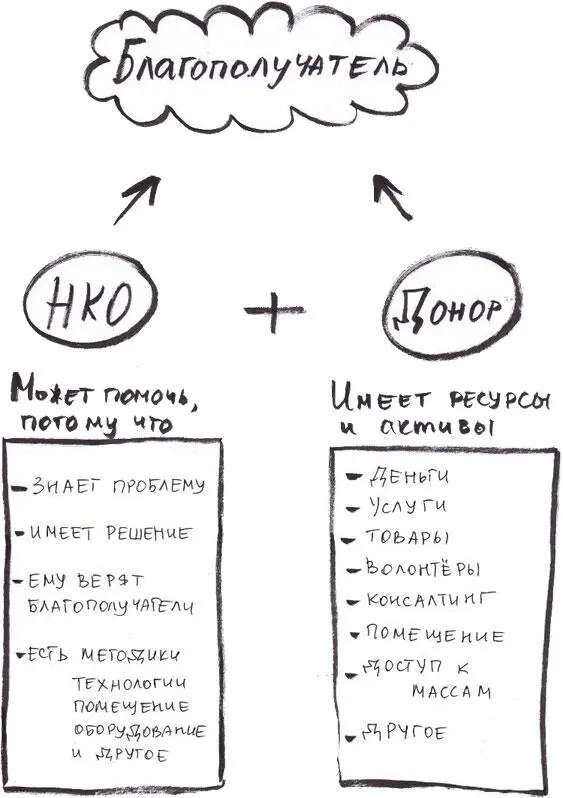 Благополучатель
НКО + Донор
Может помочь,
потому что
- Знает проблему
- имеет решение
- ему верят
благополучатели
- есть методики
технологии
помещение
оборудование
и другое
Имеет ресурсы
и активы
- Деньги
- Услуги
- товары
- волонтёры
- консалтинг
- помещение
- доступ к
массам
- другое